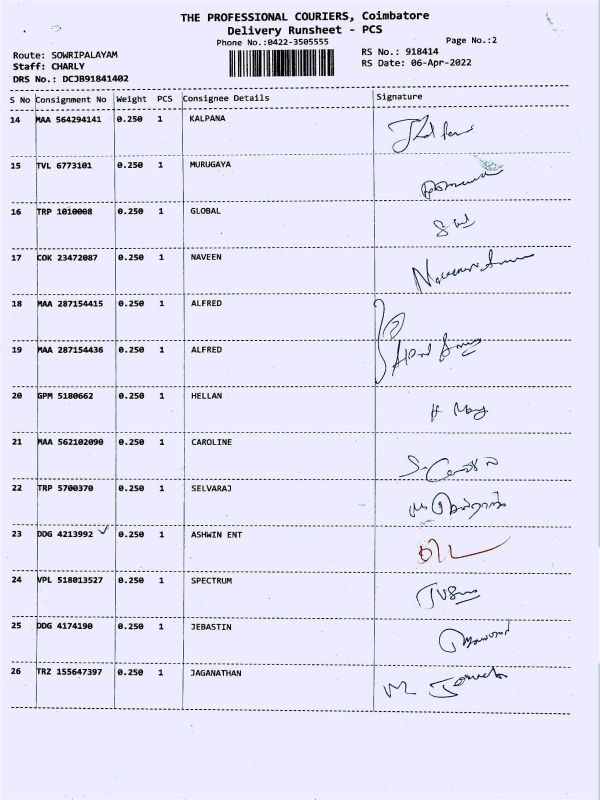 THE PROFESSIONAL COURIERS, Coimbatore
Delivery Runsheet - PCS
Phone No.:0422-3505555
Page No.:2
Route: SOWRIPALAYAM
Staff: CHARLY
DRS No.: DCJB91841402
RS No.: 918414
RS Date: 06-Apr-2022
S No Consignment No Weight PCS Consignee Details Signature
14 MAA 564294141 0.250 1 KALPANA
15 TVL 6773101 0.250 1 MURUGAYA
16 TRP 1010008 0.250 1 GLOBAL
17 COK 23472087 0.250 1 NAVEEN
18 MAA 287154415 0.250 1 ALFRED
19 MAA 287154436 0.250 1 ALFRED
20 GPM 5180662 0.250 1 HELLAN
21 MAA 562102090 0.250 1 CAROLINE
22 TRP 5700370 0.250 1 SELVARAJ
23 DDG 4213992 0.250 1 ASHWIN ENT
24 VPL 518013527 0.250 1 SPECTRUM
25 DDG 4174190 0.250 1 JEBASTIN
26 TRZ 155647397 0.250 1 JAGANATHAN